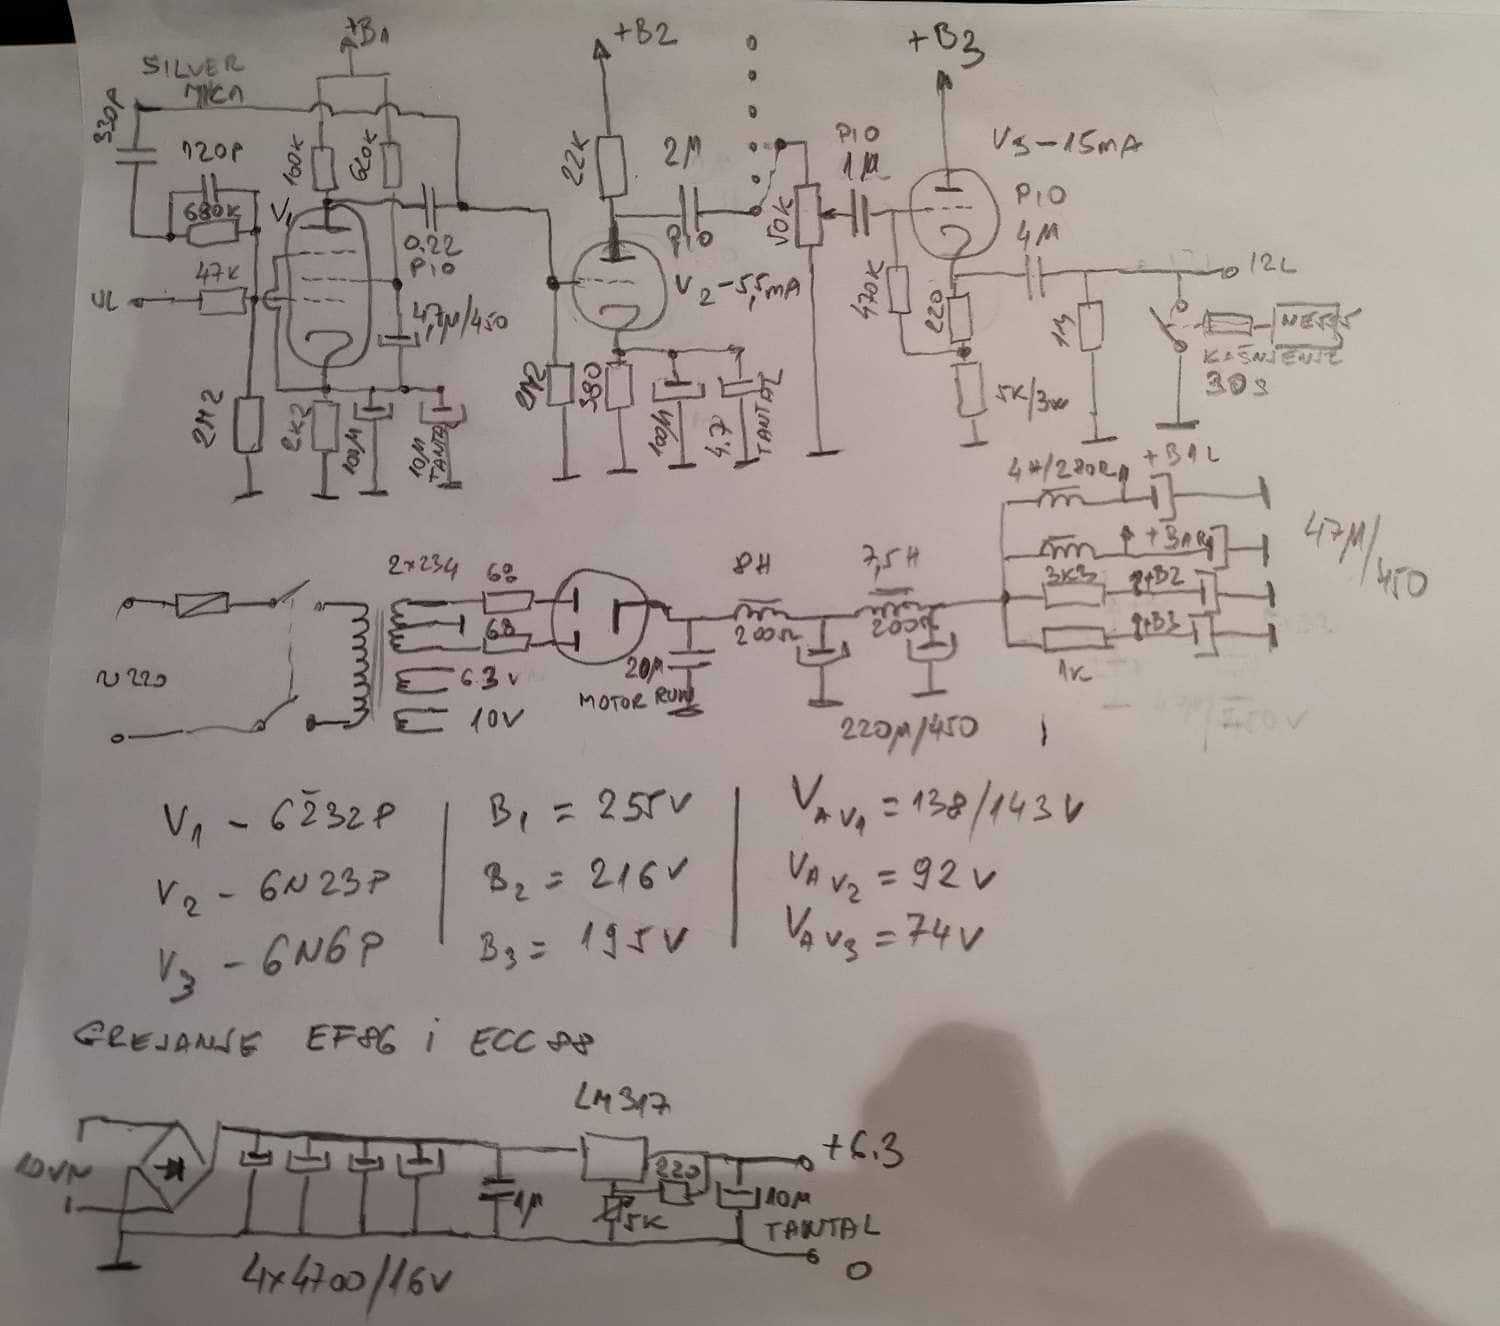 +B1
+B2
+B3
SILVER
MICA
330P
120P
680K
100K
620K
V1
0.22
PIO
47K
UL
4,7M/450
2M2
2K2
100M
10M
TANTAL
22K
2M
PIO
V2 - 5,5mA
2M2
380
100M
4.7
TANTAL
50K
PIO
1M
V3 - 15mA
PIO
4M
470K
220
1M
5K/3W
IZL
KAŠNJENJE
30s
4H/280R
+B1L
+B1R
3K3
+B2
+B3
1K
47M/450
2x234
68
68
6.3V
10V
~220
20M
MOTOR RUN
8H
200Ω
7,5H
200Ω
220M/450
V1 - 6Ž32P
B1 = 255V
VA V1 = 138/143V
V2 - 6N23P
B2 = 216V
VA V2 = 92V
V3 - 6N6P
B3 = 195V
VA V3 = 74V
GREJANJE EF86 i ECC88
LM317
10VN
+6.3
220
1M
5K
10M
TANTAL
0
4x4700/16V